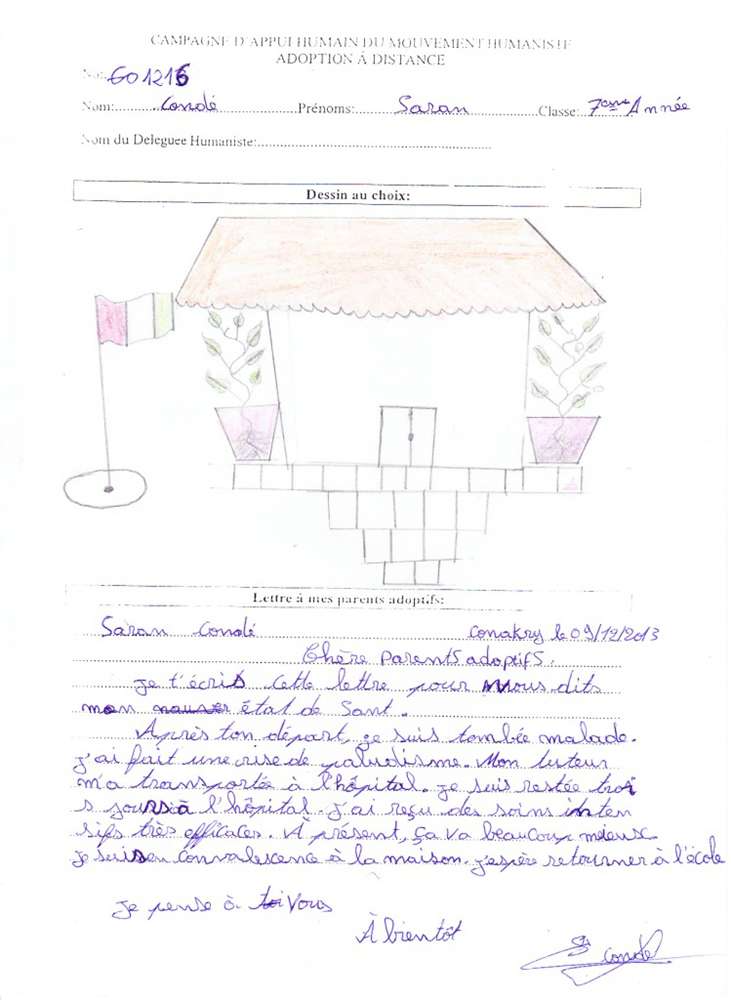 CAMPAGNE D'APPUI HUMAIN DU MOUVEMENT HUMANISTE
ADOPTION À DISTANCE
No: GO1216
Nom: Condé Prénoms: Saran Classe: 7eme Année
Nom du Deleguee Humaniste:
Dessin au choix:
Lettre à mes parents adoptifs:
Saran Condé Conakry le 09/12/2013
Chère Parents adoptifs.
Je t'écris cette lettre pour vous dits
mon état de Sant.
Après ton départ, je suis tombée malade.
J'ai fait une crise de paludisme. Mon tuteur
m'a transportée à l'hôpital. Je suis restée troi
s jours à l'hôpital. J'ai reçu des soins inten
sifs très efficaces. À présent, ça va beaucoup mieux
je suis en convalescence à la maison. j'espère retourner à l'école
Je pense à toi Vous
À bientôt
Condé